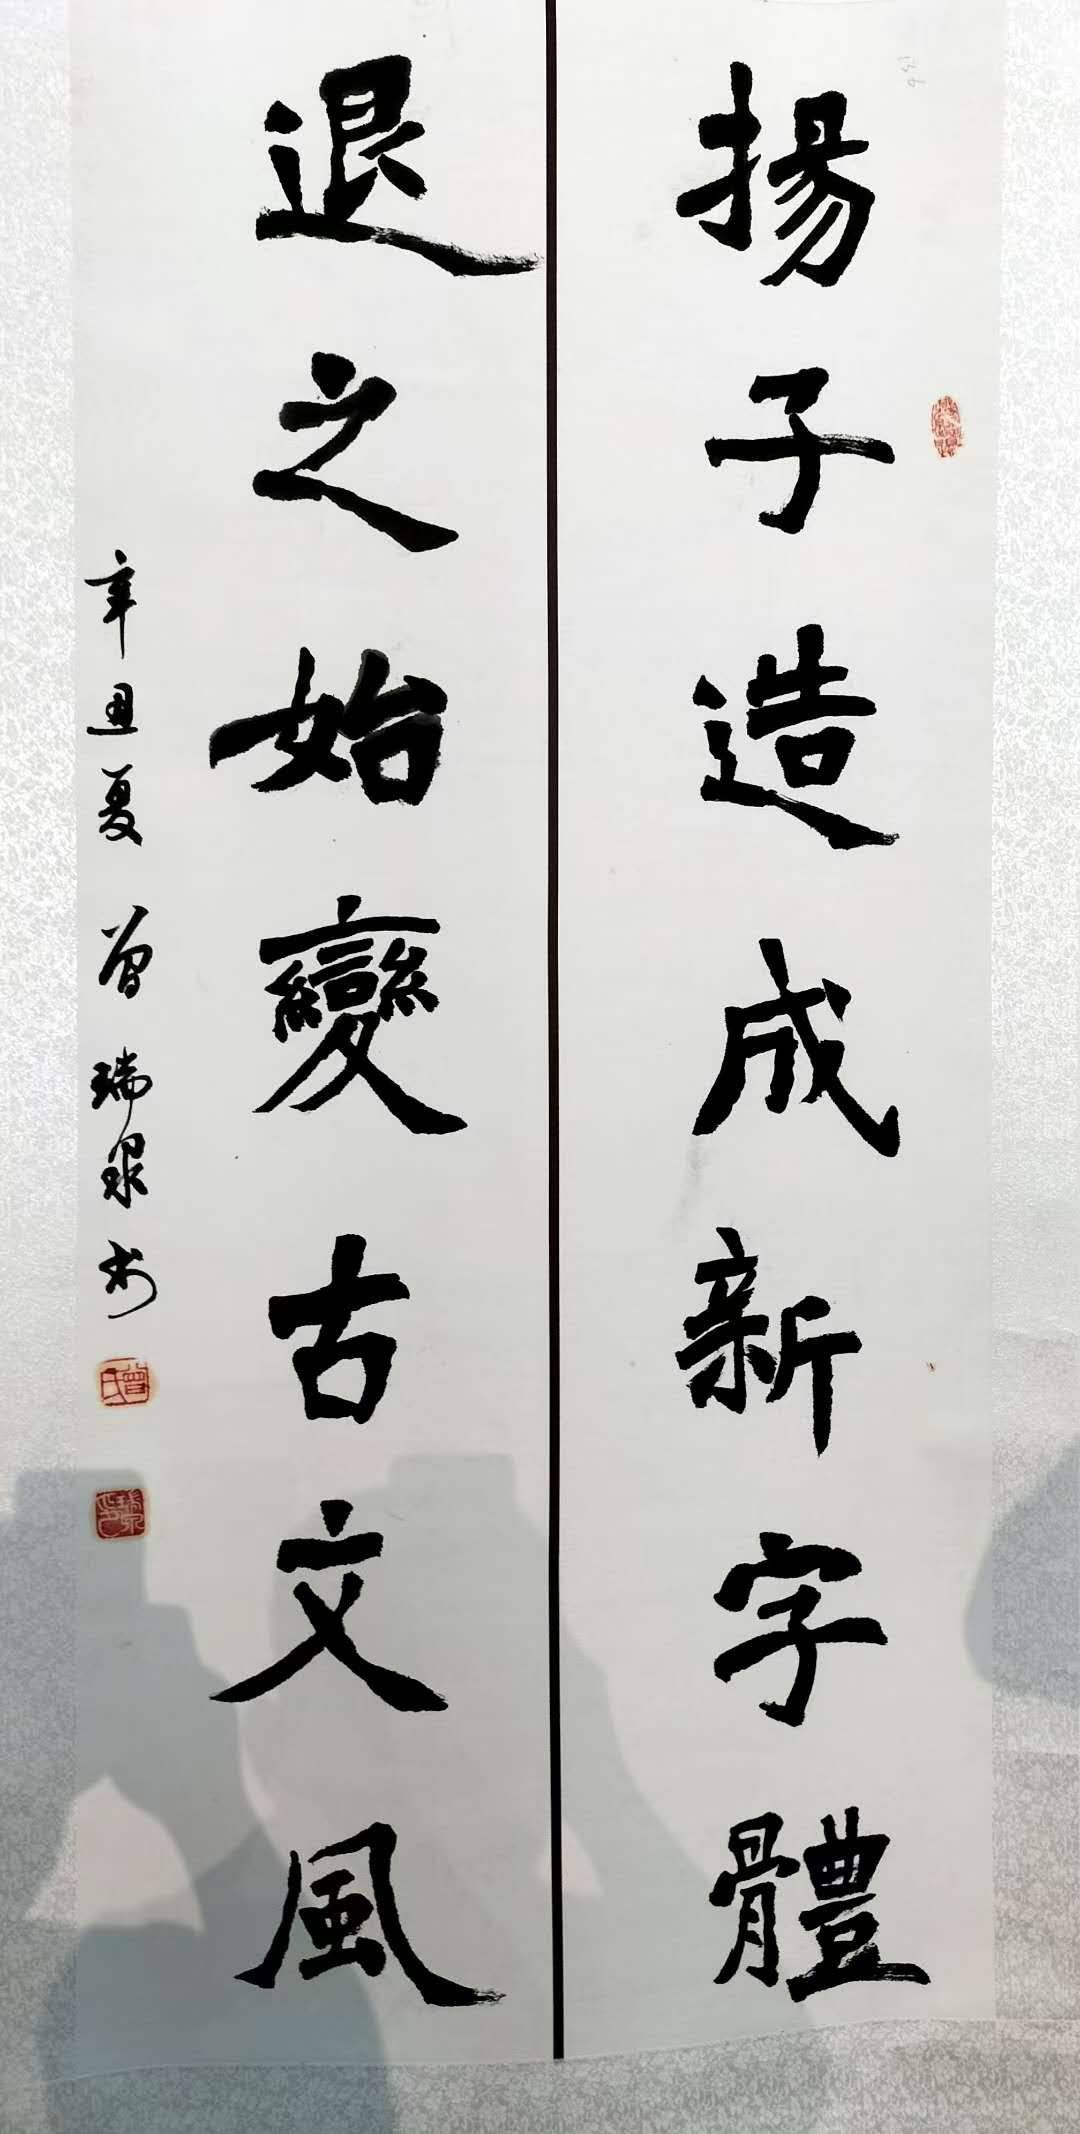 揚子造成新字體
退之始變古文風
辛丑夏 曾瑞泉书
曾氏